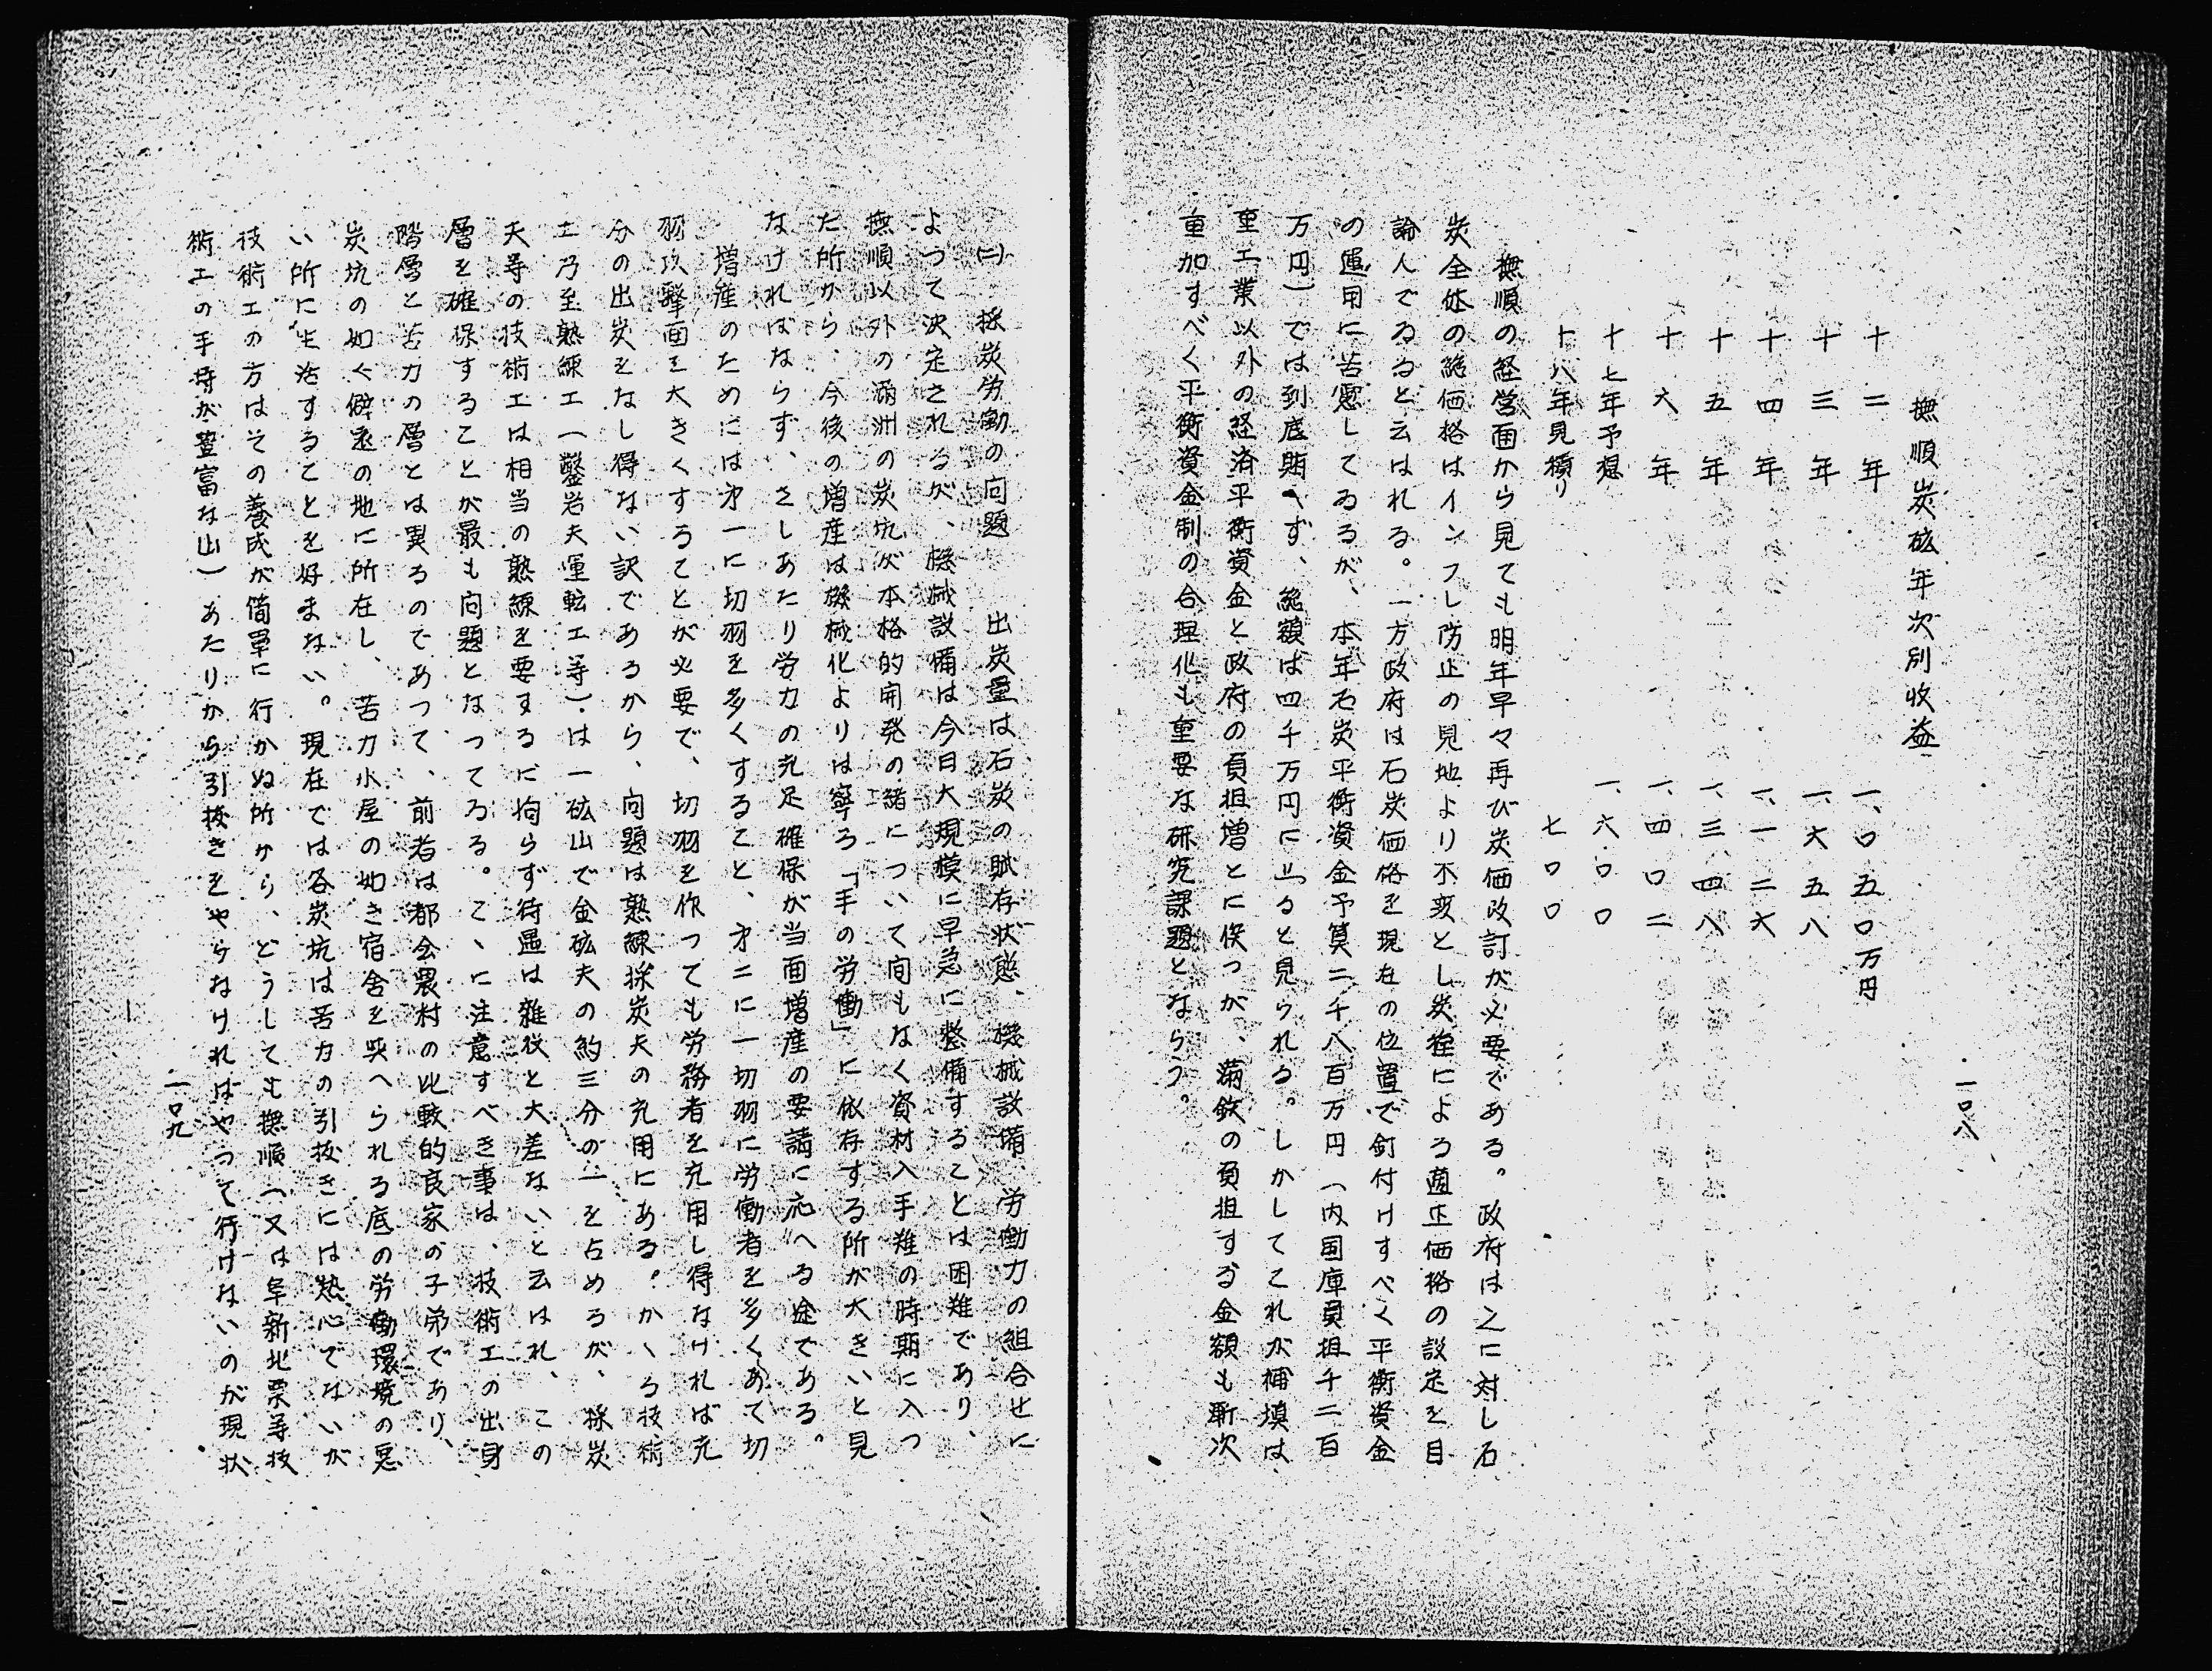 一〇八
撫順炭砿年次別收益
十二年　一、〇五〇万円
十三年　一、六五八
十四年　一、一二六
十五年　一、三四八
十六年　一、四〇二
十七年予想　一、六〇〇
十八年見積り　七〇〇
撫順の経営面から見ても明年早々再び炭価改訂が必要である。政府は之に対し石
炭全体の総価格はインフレ防止の見地より不変とし炭種による適正価格の設定を目
論んでゐると云はれる。一方政府は石炭価格を現在の位置で釘付けすべく平衡資金
の運用に苦慮してゐるが、本年石炭平衡資金予算二千八百万円（内国庫負担千二百
万円）では到底賄へず、総額は四千万円に上ると見られる。しかしてこれが補填は
重工業以外の経済平衡資金と政府の負担増とに俟つが、満鉄の負担する金額も漸次
重加すべく平衡資金制の合理化も重要な研究課題とならう。
(二)　採炭労働の問題　出炭量は石炭の賦存状態、機械設備、労働力の組合せに
よつて決定されるが、機械設備は今日大規模に早急に整備することは困難であり、
撫順以外の満洲の炭坑が本格的開発の緒について間もなく資材入手難の時期に入つ
た所から、今後の増産は機械化よりは寧ろ「手の労働」に依存する所が大きいと見
なければならず、さしあたり労力の充足確保が当面増産の要請に応へる途である。
増産のためには才一に切羽を多くすること、才二に一切羽に労働者を多くあて切
羽攻撃面を大きくすることが必要で、切羽を作つても労務者を充用し得なければ充
分の出炭をなし得ない訳であるから、問題は熟練採炭夫の充用にある。かゝる技術
工乃至熟練工（鑿岩夫運転工等）は一砿山で全砿夫の約三分の一を占めるが、採炭
夫等の技術工は相当の熟練を要するに拘らず待遇は雑役と大差ないと云はれ、この
層を確保することが最も問題となつてゐる。こゝに注意すべき事は、技術工の出身
階層と苦力の層とは異るのであつて、前者は都会農村の比較的良家の子弟であり、
炭坑の如く僻遠の地に所在し、苦力小屋の如き宿舎を与へられる底の労働環境の悪
い所に生活することを好まない。現在では各炭坑は苦力の引抜きには熱心でないが
技術工の方はその養成が簡単に行かぬ所から、どうしても撫順（又は阜新北票等技
術工の手持が豊富な山）あたりから引抜きをやらなければやつて行けないのが現状
一〇九